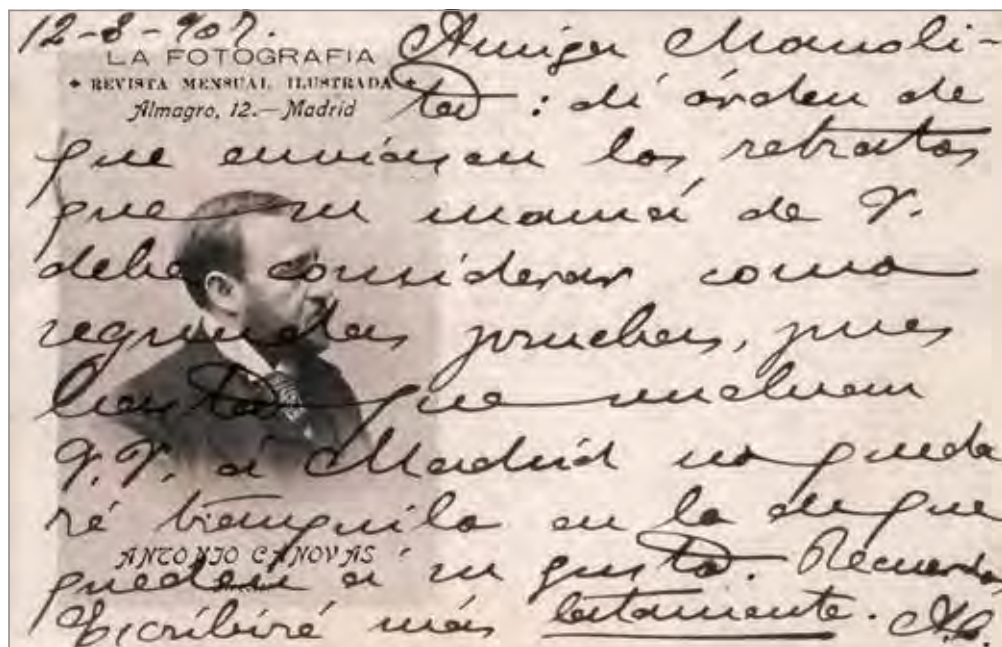 12-8-907.
LA FOTOGRAFIA
REVISTA MENSUAL ILUSTRADA
Almagro, 12.—Madrid
Amiga Manoli-
ta: dí órden de
que enviasen los retratos
que su mamá de V.
debe considerar como
segundas pruebas, pues
hasta que vuelvan
V.V. á Madrid no queda
ré tranquilo en la de que
queden á su gusto. Recuerdos
Escribiré más latamente. A.C.
ANTONIO CANOVAS